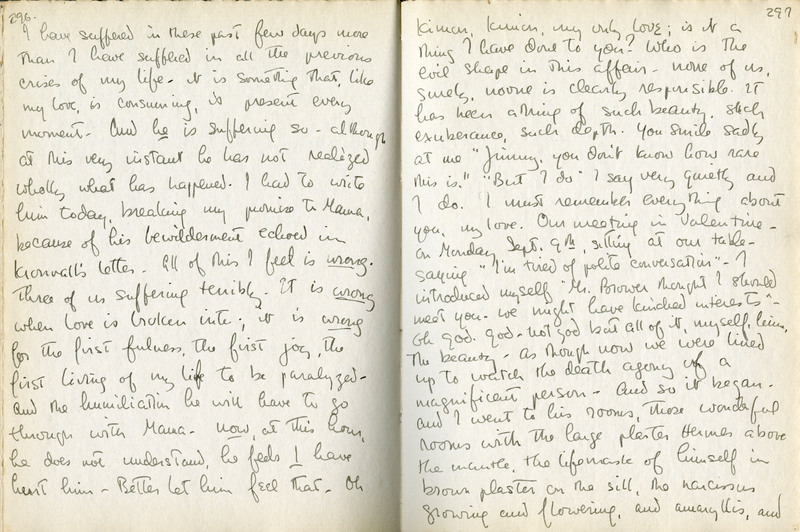 296.
I have suffered in these past few days more
than I have suffered in all the previous
crises of my life - it is something that, like
my love, is consuming, is present every
moment - And he is suffering so - although
at this very instant he has not realized
wholly what has happened. I had to write
him today, breaking my promise to Mama,
because of his bewilderment echoed in
letter - All of this I feel is wrong.
Three of us suffering terribly - It is wrong
when love is broken into; it is wrong
for the first fulness, the first joy, the
first living of my life to be paralyzed -
and the humiliation he will have to go
through with Mama - now, at this hour,
he does not understand, he feels I have
hurt him - Better let him feel that - Oh
297
Kimon, Kimon, my only love; is it a
thing I have done to you? Who is the
evil shape in this affair - none of us,
surely, noone is clearly responsible. It
has been a thing of such beauty, such
exuberance, such depth. You smile sadly
at me "Jimmy, you don't know how rare
this is." "But I do" I say very quietly and
I do. I must remember everything about
you, my love. Our meeting in Valentine -
on Monday, Sept. 9th, sitting at our table -
saying "I'm tired of polite conversation" - I
introduced myself "Mr. Brower thought I should
meet you - we might have kindred interests" -
Oh god. god - not god but all of it, myself, him,
the beauty - as though now we were lined
up to watch the death agony of a
magnificent person - And so it began -
and I went to his rooms, those wonderful
rooms with the large plaster Hermes above
the mantle, the lifemask of himself in
brown plaster on the sill, the narcissus
growing and flowering, and amaryllis, and